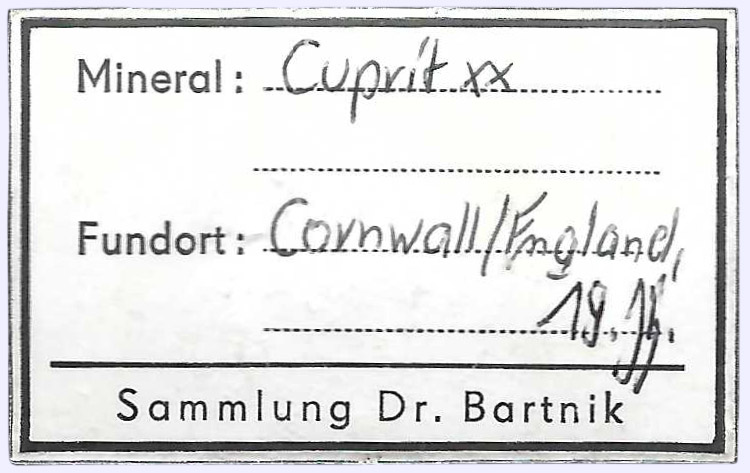 Mineral: Cuprit xx
Fundort: Cornwall/England,
19. Jh.
Sammlung Dr. Bartnik